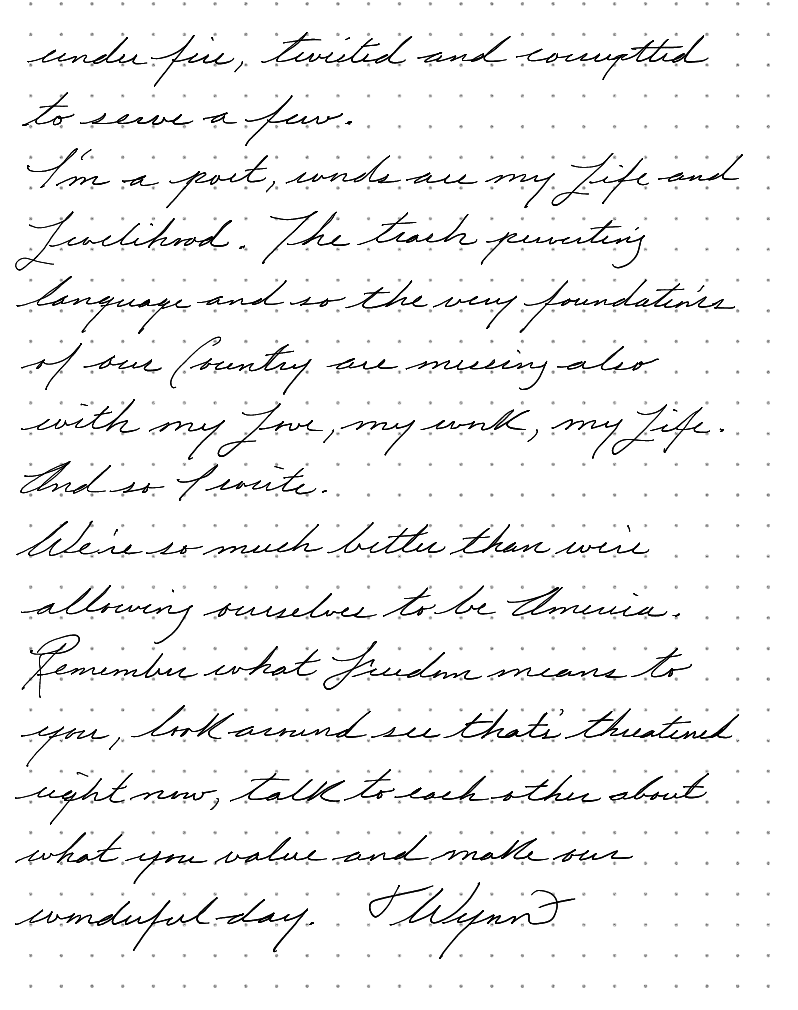 under fire, twisted and corruptted
to serve a few.
I'm a poet, words are my Life and
Livelihood. The trash perverting
language and so the very foundations
of our Country are messing also
with my Love, my work, my Life.
And so I write.
We're so much better than we're
allowing ourselves to be America.
Remember what Freedom means to
you, look around see that's threatened
right now, talk to each other about
what you value and make our
wonderful day. Wynn